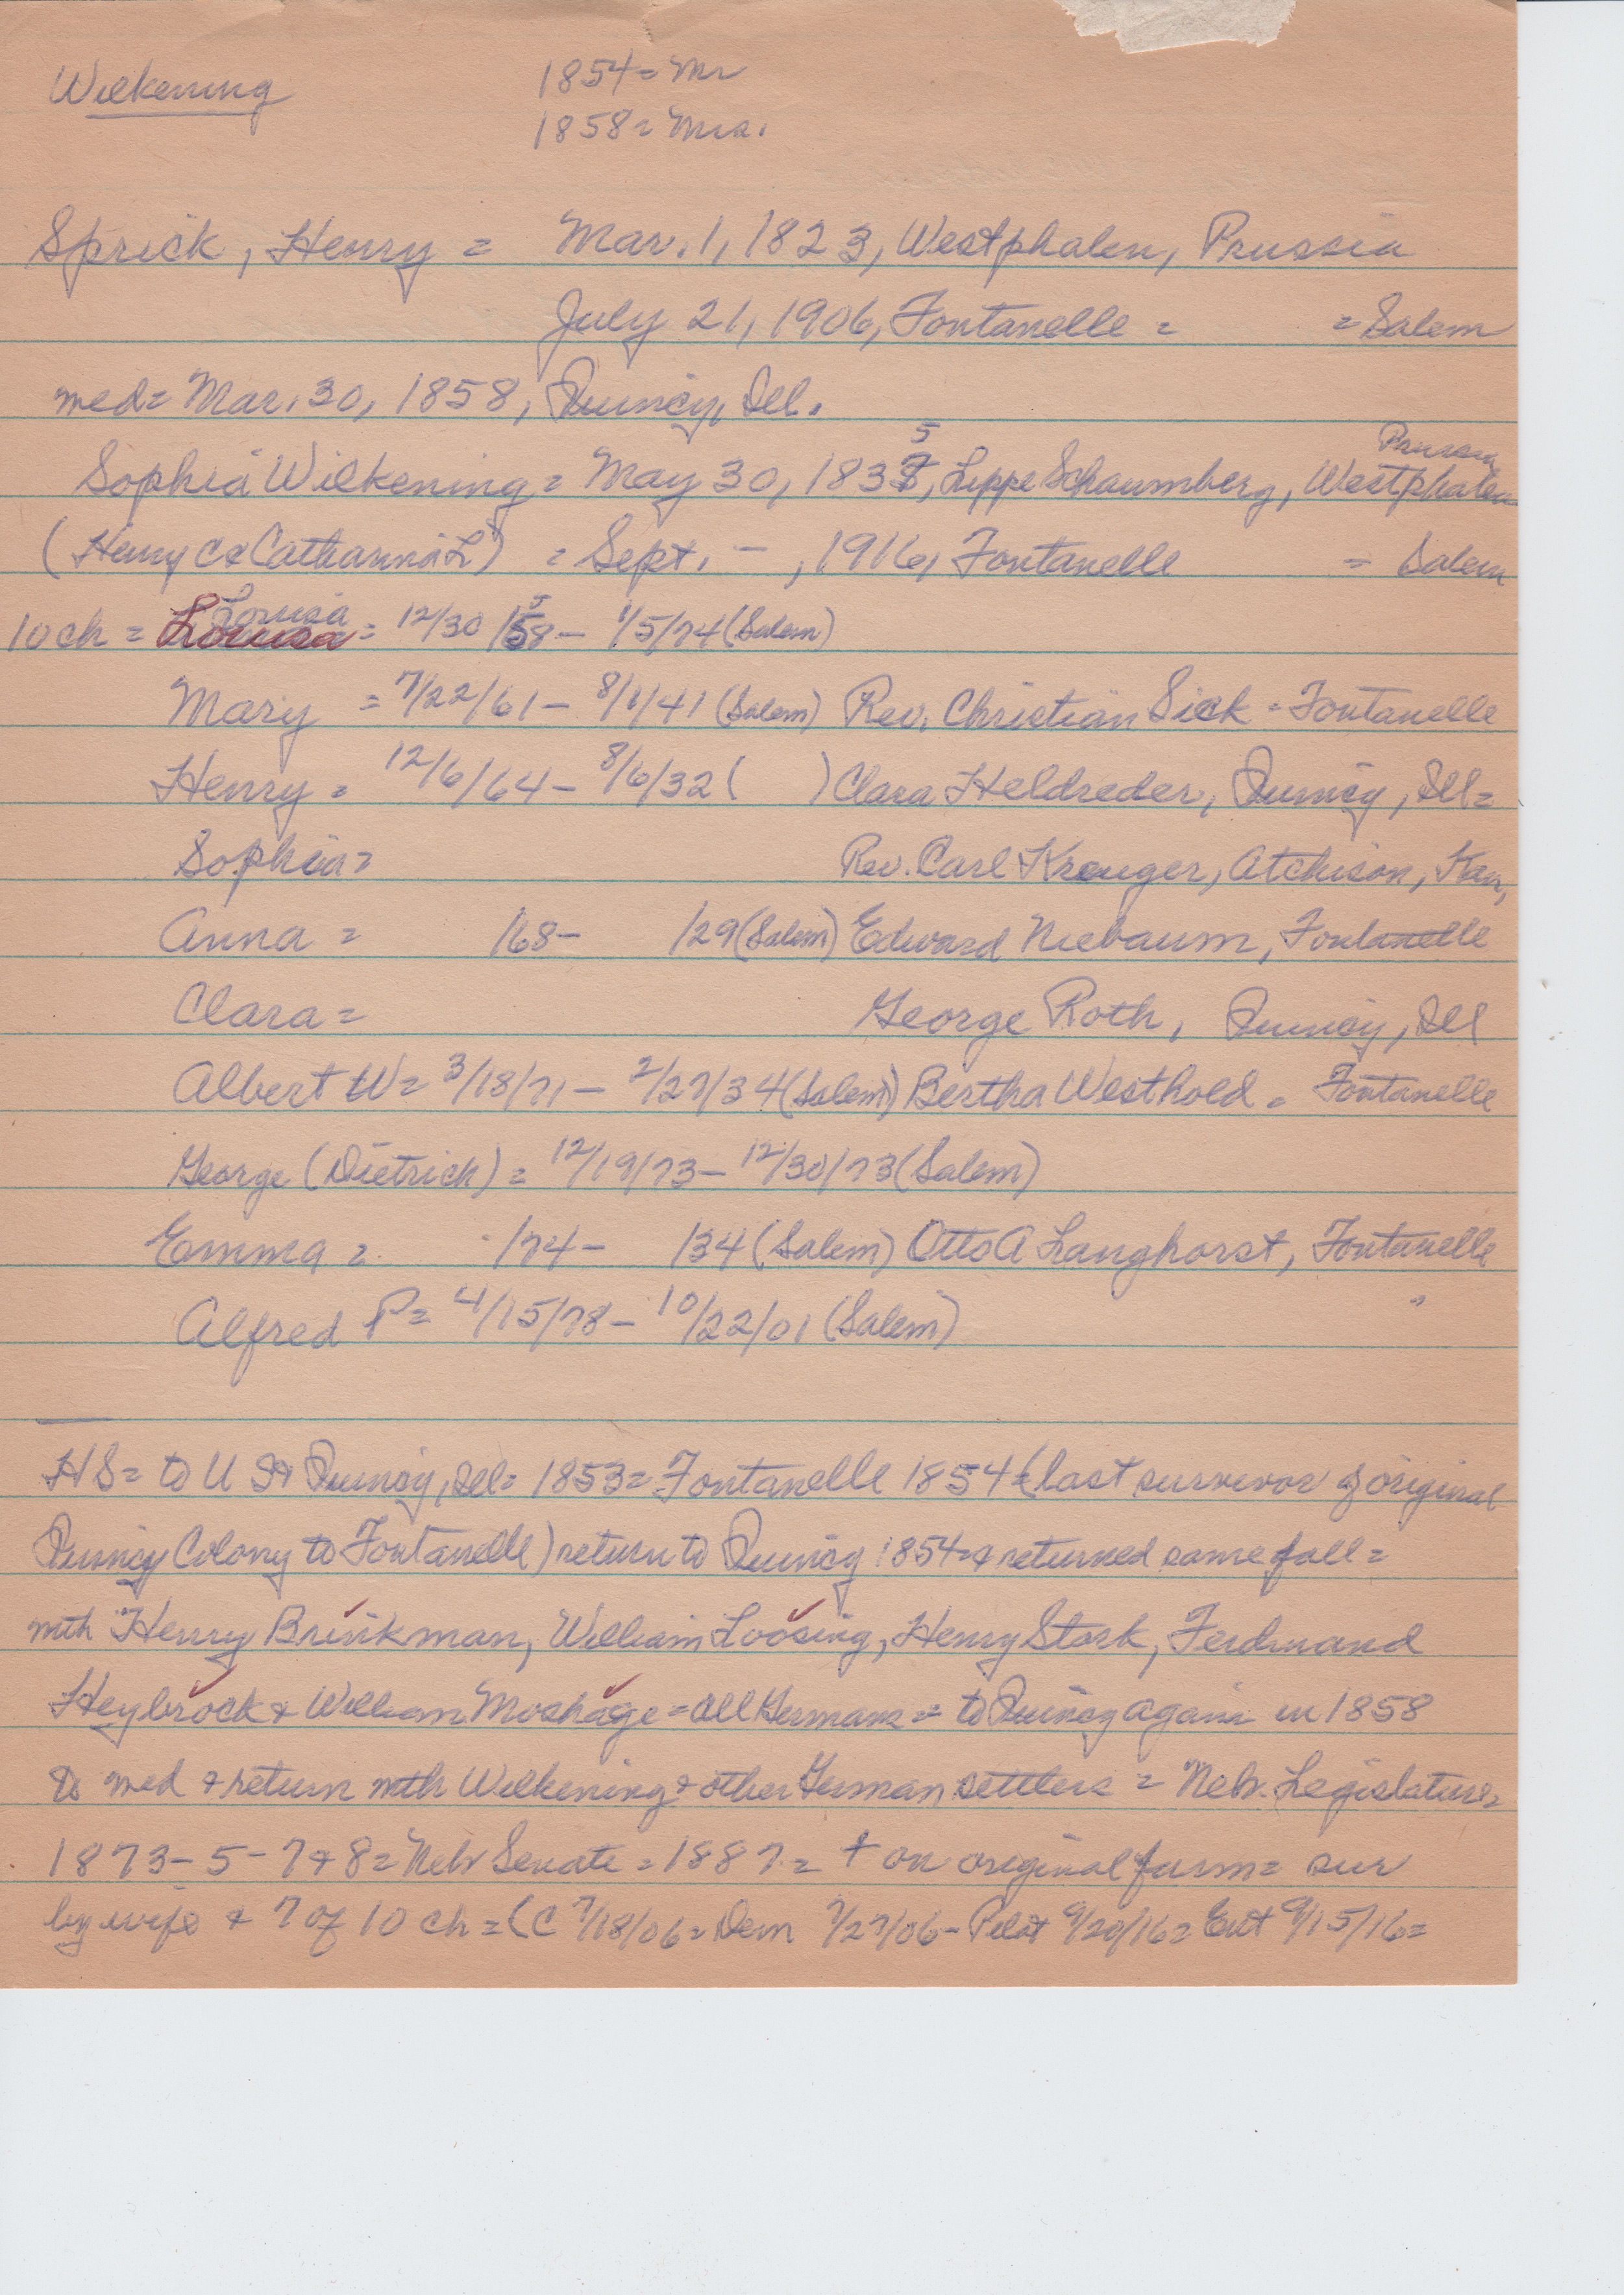 Wilkening 1854 = Mr
1858 = Mrs.
Sprick, Henry = Mar. 1, 1823, Westphalen, Prussia
July 21, 1906, Fontanelle = = Salem
med = Mar. 30, 1858, Quincy, Ill.
Sophia Wilkening = May 30, 1835, Lippe Schaumberg, Westphalen Prussia
(Henry C & Catharina L) = Sept. –, 1916, Fontanelle = Salem
10 ch = Louisa Louisa = 12/30/58 – 1/5/74 (Salem)
Mary = 7/22/61 – 8/1/41 (Salem) Rev. Christian Sick = Fontanelle
Henry = 12/6/64 – 8/6/32 ( ) Clara Heldreder, Quincy, Ill =
Sophia = Rev. Carl Kreuger, Atchison, Kan,
Anna = /68 – /29 (Salem) Edward Niebaum, Fontanelle
Clara = George Roth, Quincy, Ill
Albert W = 3/18/71 – 2/27/34 (Salem) Bertha Westhold = Fontanelle
George (Dietrich) = 12/19/73 – 12/30/73 (Salem)
Emma = /74 – /34 (Salem) Otto A Langhorst, Fontanelle
Alfred P = 4/15/78 – 10/22/01 (Salem) "
HS = to U S & Quincy, Ill = 1853 = Fontanelle 1854 (last survivor of original
Quincy Colony to Fontanelle) return to Quincy 1854 & returned same fall =
with Henry Brinkman, William Loosing, Henry Stork, Ferdinand
Heybrock & William Moshage = all Germans = to Quincy again in 1858
to med & return with Wilkening & other German settlers = Neb. Legislature =
1873 – 5 – 7 & 8 = Neb Senate = 1887 = + on original farm = sur
by wife & 7 of 10 ch = (C 7/18/06 = Dem 7/27/06 – Pilot 9/20/16 = Ent 9/15/16 =